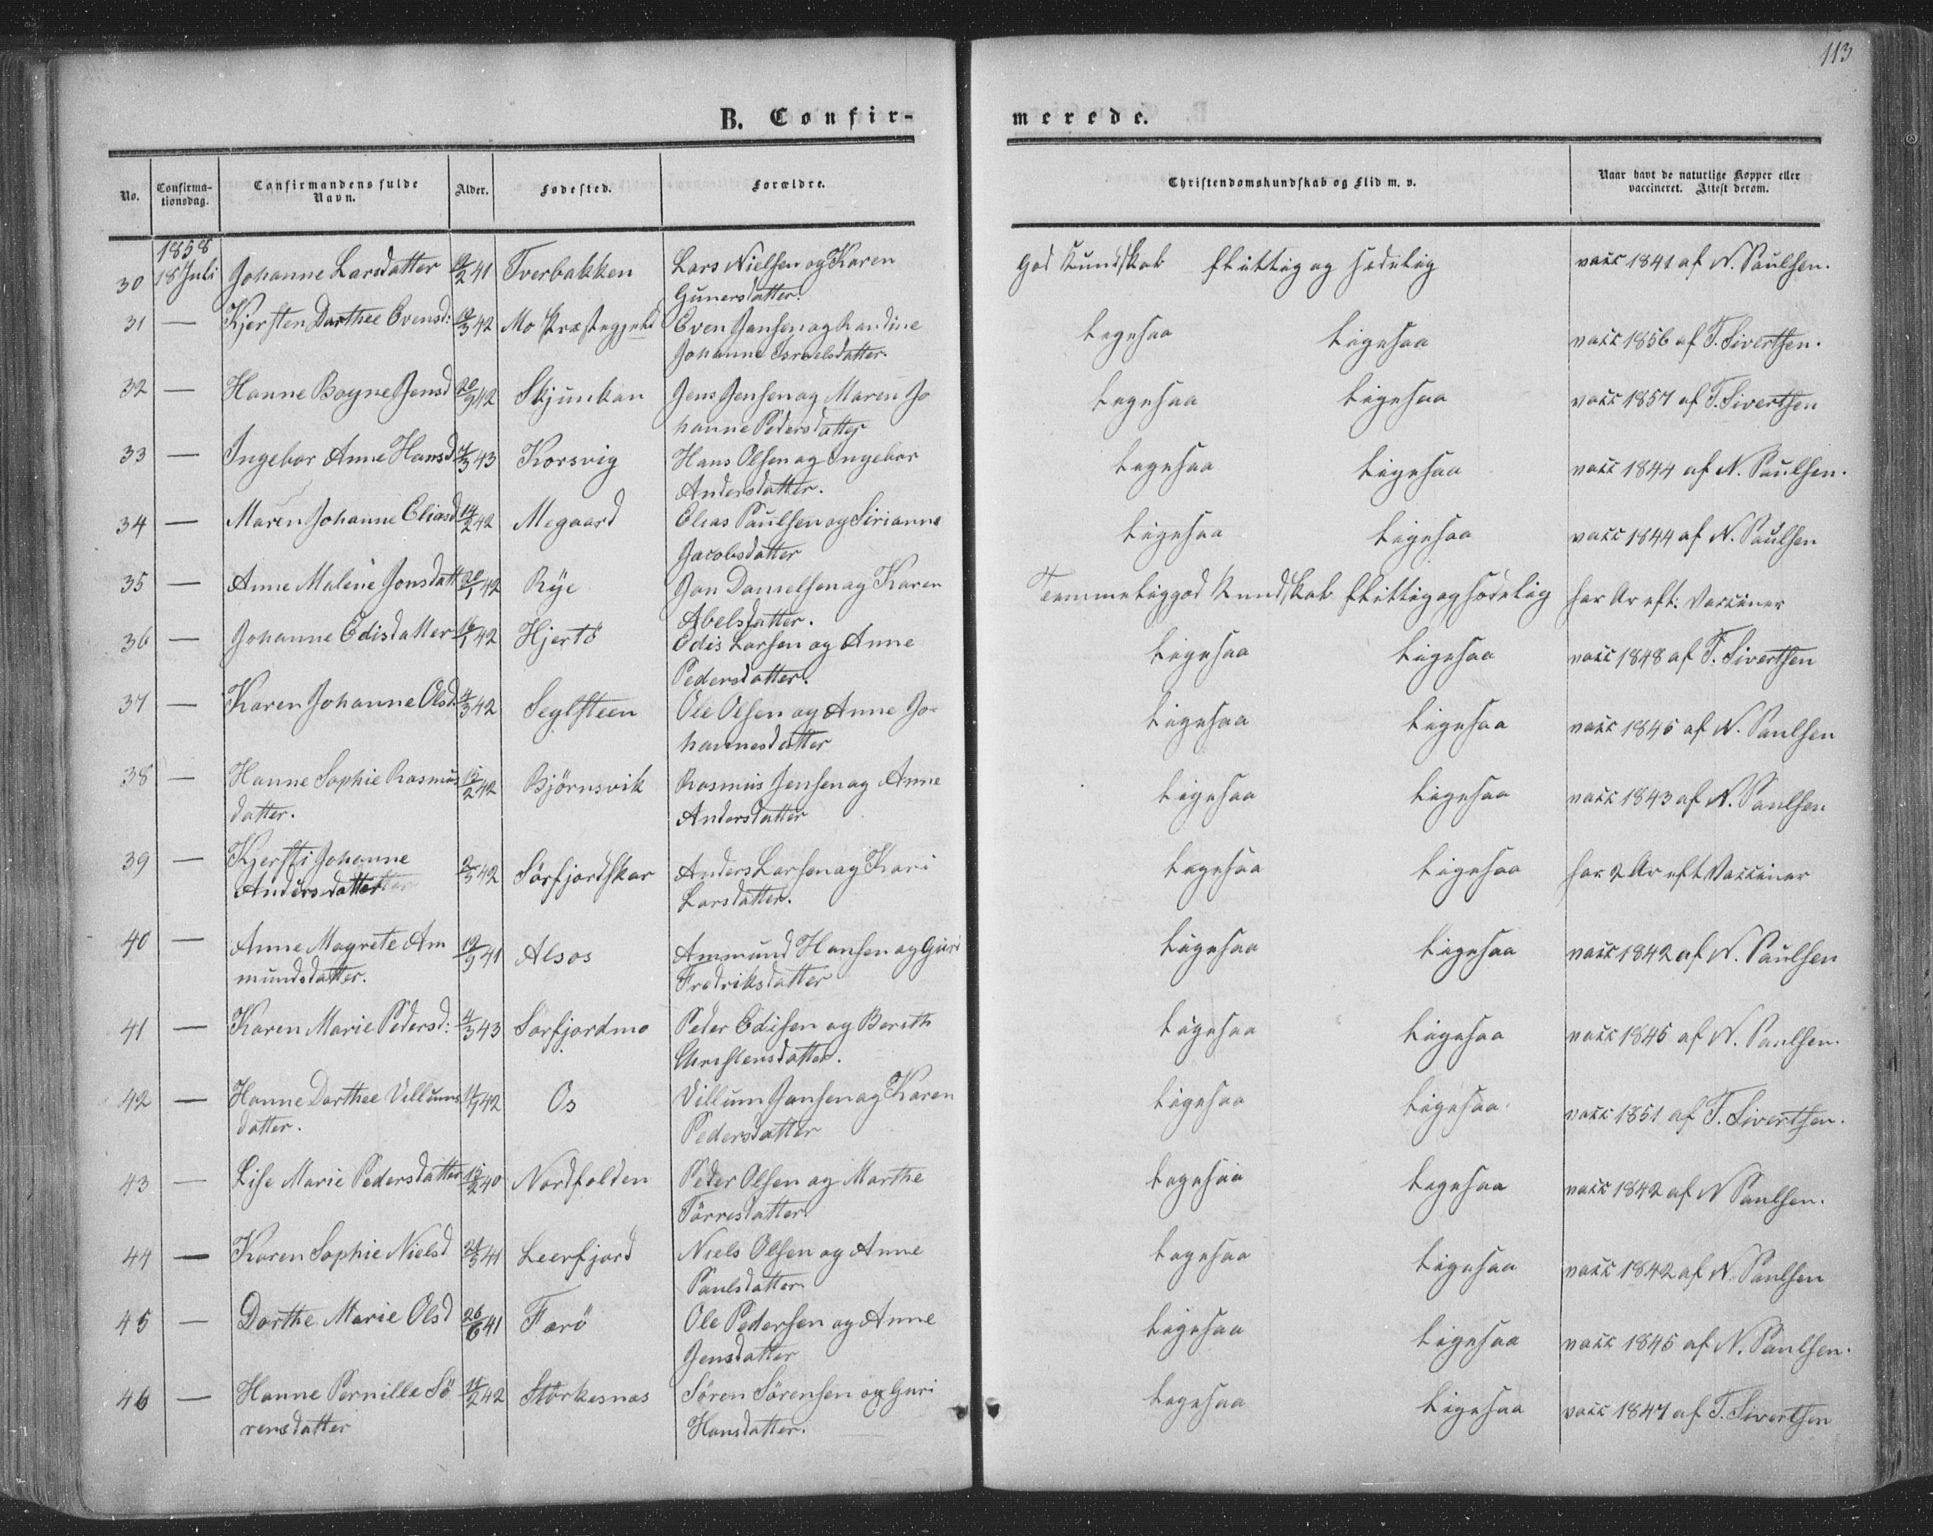 113
B. Confir-
merede.
No.
Confirma-
tionsdag.
Confirmandens fulde
Navn.
Alder.
Fødested.
Forældre.
Christendomskundskab og Flid m. v.
Naar havt de naturlige Kopper eller
vaccineret. Attest derom.
1858
30 18 Juli Johanne Larsdatter /2 41 Tverbakken Lars Nielsen og Karen God Kundskab flittig og sædelig vacc 1841 af N. Paulsen.
Gunersdatter.
31 — Kjersten Dorthee Evensd: /3 42 Mo Præstegjeld Even Jansen og Handine Ligesaa Ligesaa vacc 1856 af T. Sivertsen.
Johanne Israelsdatter.
32 — Hanne Boyne Jensd 42 Skjunkan Jens Jensen og Maren Jo Ligesaa Ligesaa vacc 1857 af T. Sivertsen
hanne Pedersdatter
33 — Ingebor Anne Hansd /3 43 Korsvig Hans Olsen og Ingebor Ligesaa Ligesaa vacc 1844 af N. Paulsen.
Andersdatter.
34 — Maren Johanne Eliasd 14/2 42 Megaard Elias Paulsen og Sirianne Ligesaa Ligesaa vacc 1844 af N. Paulsen
Jacobsdatter
35 — Anne Malene Jonsdatt 20/1 42 Røje Jon Danielsen og Karen Temmelig god Kundskab flittig og sædelig har Ar eft: Vacciner
Abelsdatter.
36 — Johanne Edisdatter /1 42 Hjertö Edis Larsen og Anne Ligesaa Ligesaa vacc 1848 af T. Sivertsen
Pedersdatter.
37 — Karen Johanne Olsd. 4/3 42 Seglsteen Ole Olsen og Anne Jo- Ligesaa Ligesaa vacc 1845 af N. Paulsen
hannesdatter
38 — Hanne Sophie Rasmus /2 42 Björnsvik Rasmus Jensen og Anne Ligesaa Ligesaa vacc 1843 af N. Paulsen
datter. Andersdatter
39 — Kjersti Johanne 2/3 42 Sörfjordskar Anders Larsen og Kari Ligesaa Ligesaa har 2 Ar eft Vacciner
Andersdatter Larsdatter.
40 — Anne Magrete Am 19/9 41 Alsos Ammund Hansen og Guri Ligesaa Ligesaa vacc 1842 af N. Paulsen
mundsdatter. Fredriksdatter
41 — Karen Marie Pedersd: 4/3 43 Sörfjordmo Peder Edisen og Berith Ligesaa Ligesaa vacc 1845 af N. Paulsen.
Christensdatter.
42 — Hanne Dorthee Villums 42 Os Villum Jansen og Karen Ligesaa Ligesaa. vacc 1851 af T. Sivertsen.
datter. Pedersdatter
43 — Lise Marie Pedersdatter /2 40 Nordfolden Peder Olsen og Marthe Ligesaa Ligesaa vacc 1842 af N Paulsen.
Törresdatter.
44 — Karen Sophie Nielsd 21/3 41 Leerfjord Niels Olsen og Anne Ligesaa Ligesaa vacc 1842 af N. Paulsen
Paulsdatter
45 — Dorthe Marie Olsd 26/6 41 Færö Ole Pedersen og Anne Ligesaa Ligesaa vacc 1845 af N. Paulsen.
Jensdatter
46 — Hanne Pernilla Sö /2 42 Storkesnæs Sören Sörensen og Guri Ligesaa Ligesaa vacc 1847 af T. Sivertsen
rensdatter Hansdatter.